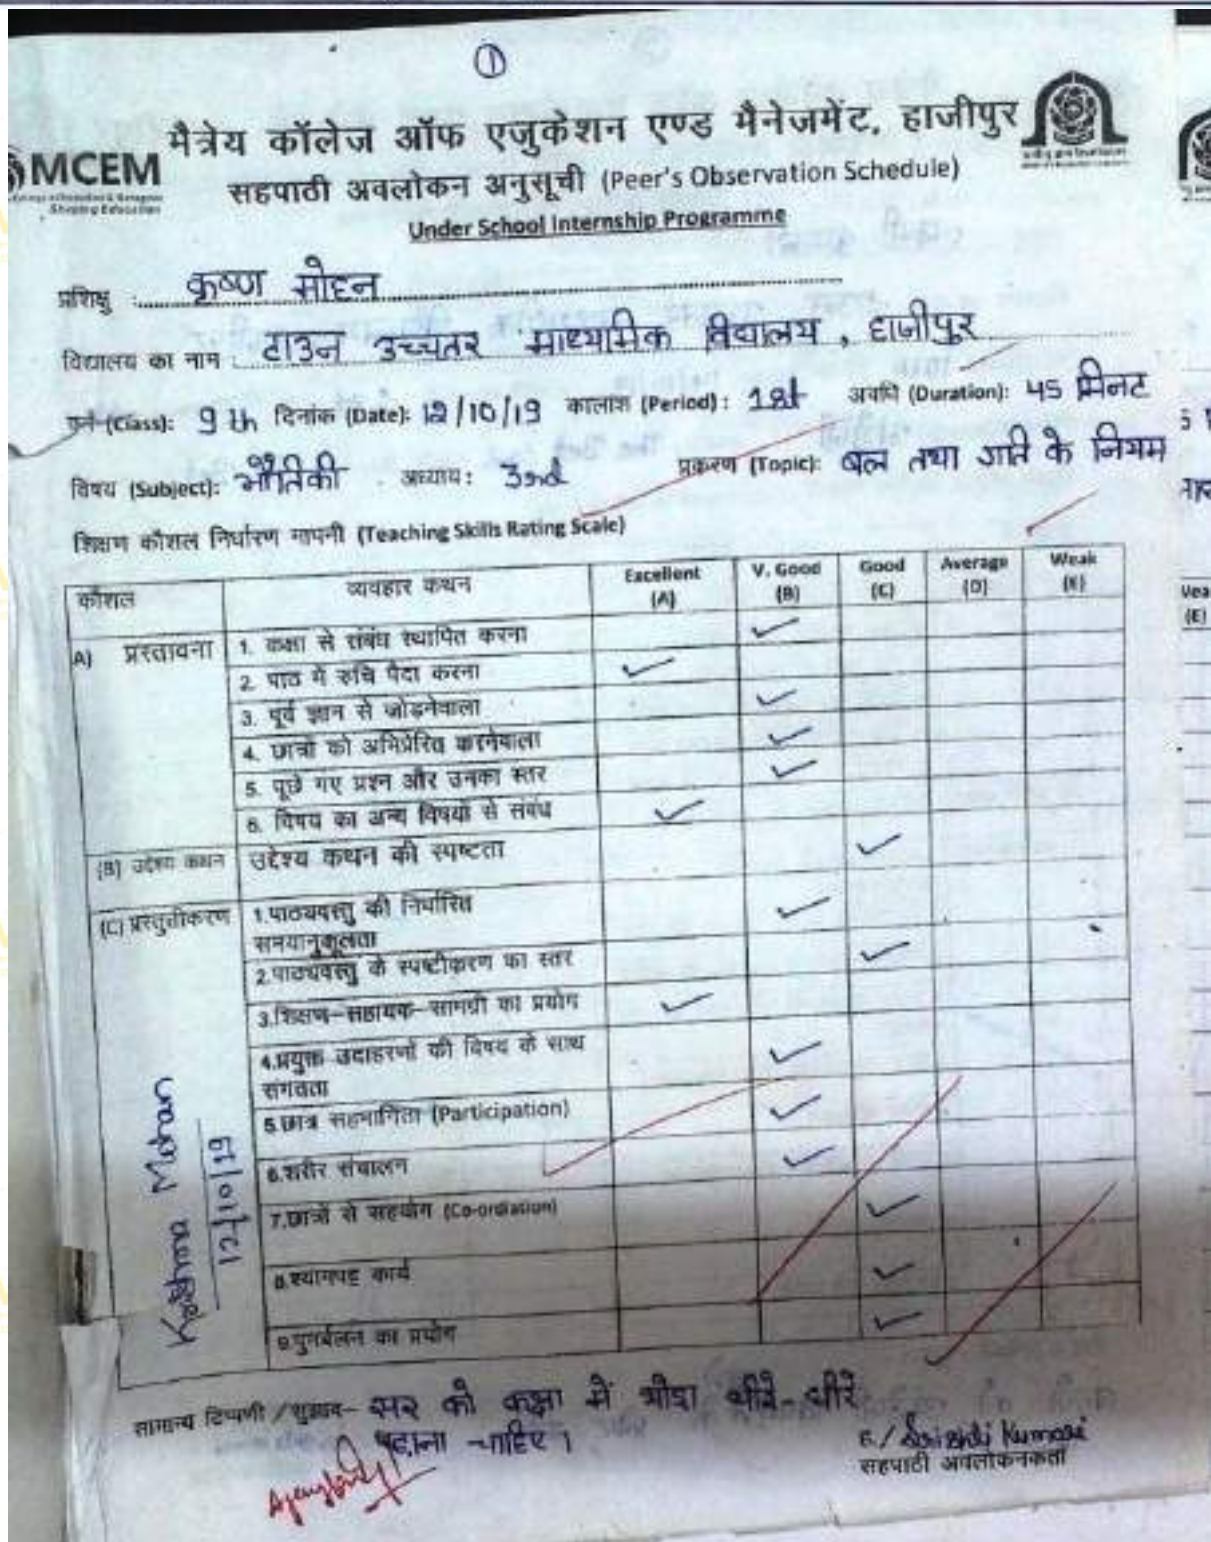 ①
मैत्रेय कॉलेज ऑफ एजुकेशन एण्ड मैनेजमेंट, हाजीपुर
MCEM
Shaping Education
सहपाठी अवलोकन अनुसूची (Peer's Observation Schedule)
Under School Internship Programme
प्रशिक्षु : कृष्ण मोहन
विद्यालय का नाम : टाउन उच्चतर माध्यमिक विद्यालय, हाजीपुर
(Class): 9th दिनांक (Date): 12/10/19 कालांश (Period): 1st अवधि (Duration): 45 मिनट
विषय (Subject): भौतिकी अध्याय: 3rd प्रकरण (Topic): बल तथा गति के नियम
शिक्षण कौशल निर्धारण मापनी (Teaching Skills Rating Scale)
कौशल व्यवहार कथन Excellent (A) V. Good (B) Good (C) Average (D) Weak (E)
A) प्रस्तावना 1. कक्षा से संबंध स्थापित करना ✓
2. पाठ में रूचि पैदा करना ✓
3. पूर्व ज्ञान से जोड़नेवाला ✓
4. छात्रों को अभिप्रेरित करनेवाला ✓
5. पूछे गए प्रश्न और उनका स्तर ✓
6. विषय का अन्य विषयों से संबंध ✓
(B) उद्देश्य कथन उद्देश्य कथन की स्पष्टता ✓
(C) प्रस्तुतीकरण 1.पाठ्यवस्तु की निर्धारित
समयानुकूलता ✓
2.पाठ्यवस्तु के स्पष्टीकरण का स्तर ✓
3.शिक्षण–सहायक–सामग्री का प्रयोग ✓
4.प्रयुक्त उदाहरणों की विषय के साथ
संगतता ✓
5.छात्र सहभागिता (Participation) ✓
6.शरीर संचालन ✓
7.छात्रों से सहयोग (Co-ordination) ✓
8.श्यामपट्ट कार्य ✓
9.पुनर्बलन का प्रयोग ✓
Krishna Mohan
12/10/19
सामान्य टिप्पणी / सुझाव– सर को कक्षा में थोड़ा धीरे-धीरे
पढ़ाना चाहिए।
Kumari
सहपाठी अवलोकनकर्ता